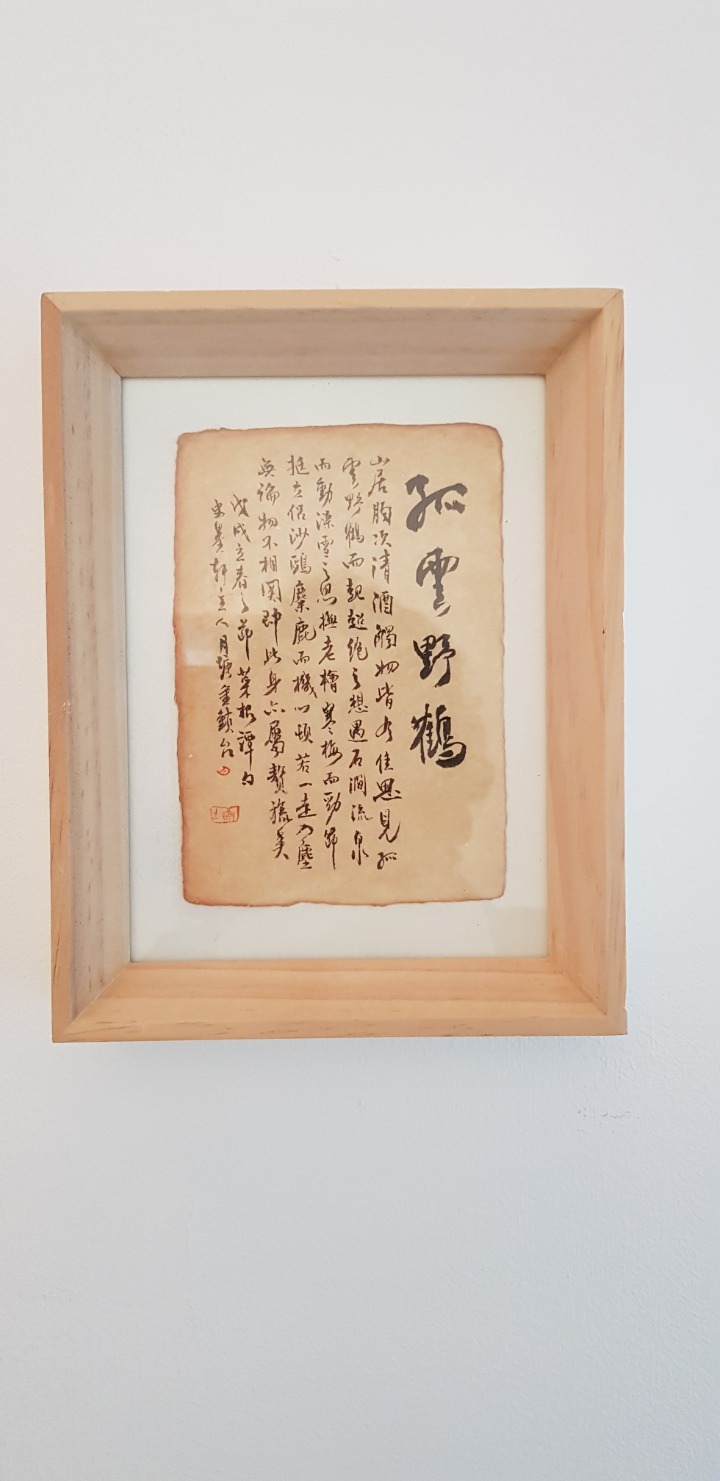 孤雲野鶴
山居胸次清酒觸物皆有佳思見孤
雲野鶴而起超絶之想遇石澗流泉
而動澡雪之思撫老檜寒梅而勁節
挺立侶沙鷗麋鹿而機心頓忘若一走入塵
寰無論物不相関即此身亦屬贅旒矣
戊戌立春之節菜根譚句
軒主人月塘金